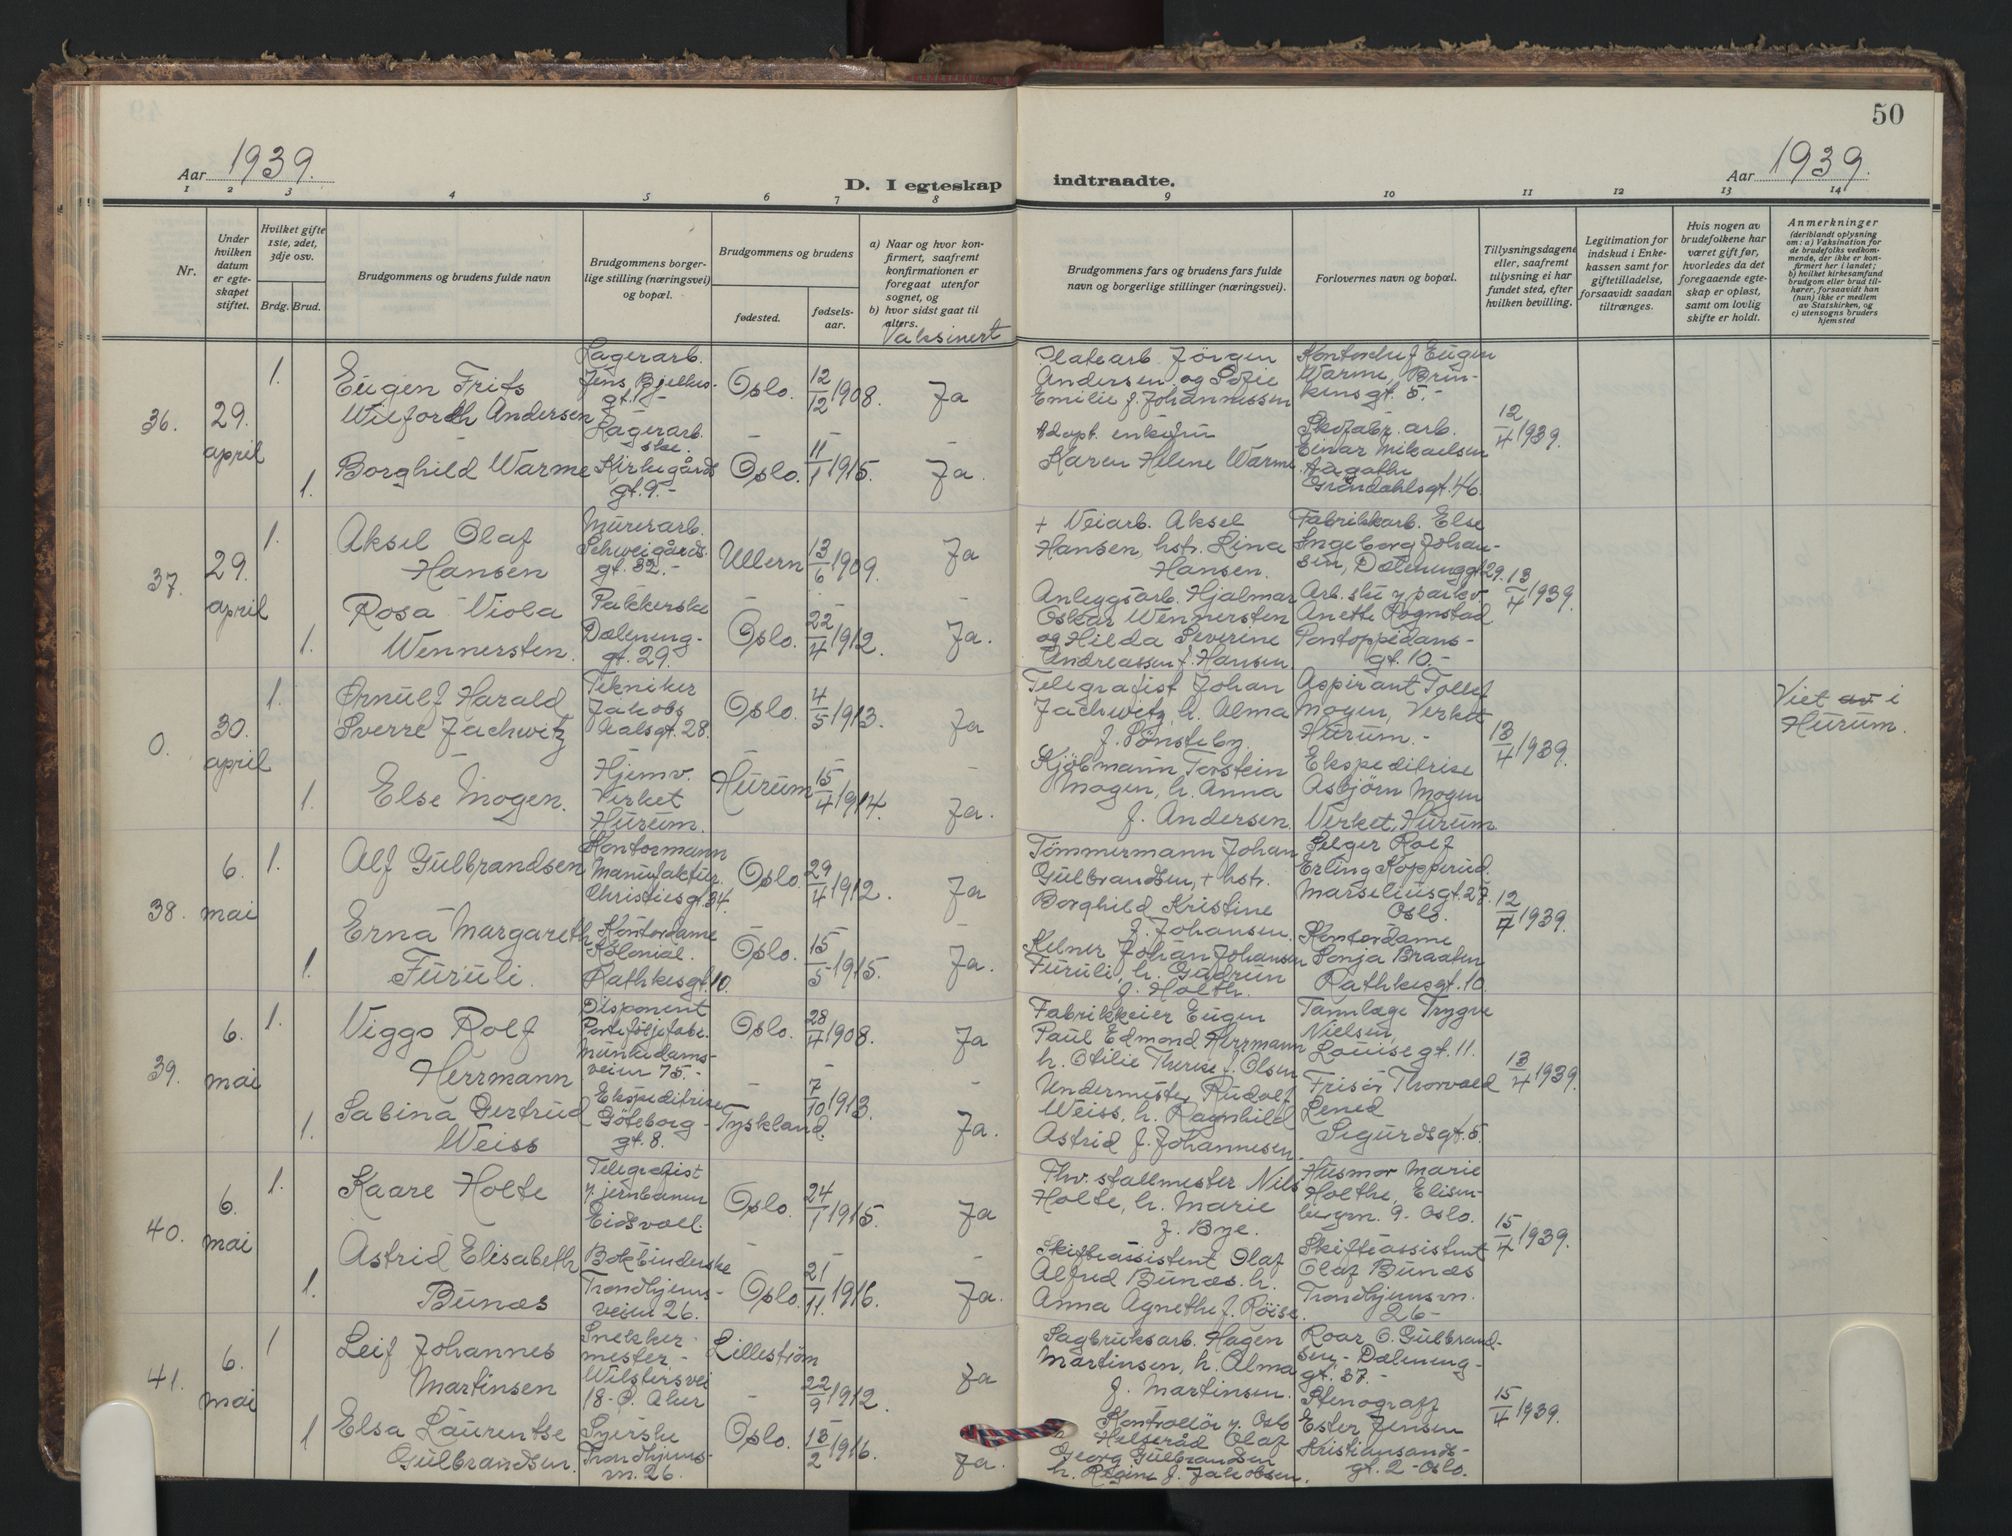 50
Aar 1939.
D. I egteskap indtraadte.
Aar 1939.
1 2 3 4 5 6 7 8 9 10 11 12 13 14
Nr.
Under hvilken datum er egteskapet stiftet.
Hvilket gifte 1ste, 2det, 3dje osv.
Brdg. Brud.
Brudgommens og brudens fulde navn
Brudgommens borgerlige stilling (næringsvei) og bopæl.
Brudgommens og brudens
fødested.
fødselsaar.
a) Naar og hvor konfirmert, saafremt konfirmationen er foregaat utenfor sognet, og
b) hvor sidst gaat til alters.
Vaksinert
Brudgommens fars og brudens fars fulde navn og borgerlige stillinger (næringsvei).
Forlovernes navn og bopæl.
Tillysningsdagene eller, saafremt tillysning ei har fundet sted, efter hvilken bevilling.
Legitimation for indskud i Enkekassen samt for giftetilladelse, forsaavidt saadan tiltrænges.
Hvis nogen av brudefolkene har været gift før, hvorledes da det foregaaende egteskap er opløst, samt om lovlig skifte er holdt.
Anmerkninger
(deriblandt oplysning om: a) Vaksination for de brudefolks vedkommende, der ikke er konfirmert her i landet; b) hvilket kirkesamfund brudgom eller brud tilhører, forsaavidt han (hun) ikke er medlem av Statskirken, og c) utensogns bruders hjemsted
36. 29. april
1.
Eugen Frits
Wilfordh Andersen
Lagerarb.
Jens Bjelkes-
gt. 1
Oslo. 12/12 1908. Ja
Platearb. Jörgen
Andersen og Sofie
Emilie f. Johannessen
Kontorchef Eugen
Warme, Brin-
kens gt. 5.-
12/4 1939.
1.
Borghild Warme
Lagerarb.
ske.
Kirkegårds
gt. 9.-
Oslo. 11/1 1915. Ja.
Adopt. enkefru
Karen Helene Warme
Skofabr. arb.
Einar Mikaelsen
Aagathe
Gröndahlsgt. 46.
37. 29. april
1.
Aksel Olaf
Hansen
Murerarb.
Schweigårds.
gt. 32.-
Ullern 13/6 1909. Ja
+ Veiarb. Aksel
Hansen, hstr. Lina
Hansen.
Fabrikkarb. Else
Ingeborg Johan-
sen, Dælenenggt 29.
13/4 1939.
1.
Rosa Viola
Wennersten.
Pakkerske
Dæleneng-
gt. 29.
Oslo. 22/4 1912. Ja.
Anleggsarb. Hjalmar
Oskar Wennersten
og Hilda Severine
Andreassen f. Hansen.
Arb. ske v. parkv.
Anette Rognstad
Pontoppidans-
gt. 10.-
0. 30. april
1.
Ørnulf Harald
Sverre Jachwitz
Tekniker
Jakobs
Aalsgt. 28.
Oslo. 4/5 1913. Ja
Telegrafist Johan
Jachwitz, h. Alma
f. Sönsteby.
Aspirant Tollef
Mogen, Verket
Hurum.-
13/4 1939.
Viet av i
Hurum.
1.
Else Mogen.
Hjemv.
Verket
Hurum.
Hurum 15/4 1914. Ja.
Kjöbmann Torstein
Mogen, h. Anna
f. Andersen.
Ekspeditrise
Asbjörn Mogen
Verket, Hurum.
38. 6. mai
1.
Alf Gulbrandsen
Kontormann
Manufaktur.
Christiesgt. 34.
Oslo. 29/4 1912. Ja
Tömmermann Johan
Gulbrandsen, + hstr.
Borghild Kristine
f. Johansen.
Selger Rolf
Erling Kopperud.
Marseliusgt. 27.
Oslo.
12/4 1939.
1.
Erna Margareth
Furuli.
Kontordame
Kolonial.
Rathkesgt. 10.
Oslo. 15/5 1915. Ja.
Kelner Johan Johansen
Furuli, h. Gudrun
f. Holth.
Kontordame
Sonja Braaten
Rathkesgt. 10.
39. 6. mai
1.
Viggo Rolf
Herrmann
Disponent
Porteföljefabr.
Munkedams-
veien 75.-
Oslo. 28/4 1908. Ja
Fabrikkeier Eugen
Paul Edmond Herrmann
h. Otilie Therese f. Olsen
Tannlæge Trygve
Nielsen,
Louisegt. 11.
13/4 1939.
1.
Sabina Gertrud
Weiss
Ekspeditrise
Göteborg-
gt. 8.
Tyskland. 7/10 1913. Ja.
Undermester Rudolf
Weiss, h. Ragnhild
Astrid f. Johannesen.
Frisör Thorvald
Lened
Sigurdsgt. 5.
40. 6. mai
1.
Kaare Holte
Telegrafist
v. jernbanen
Eidsvoll.
Oslo. 24/1 1915. Ja
Fhv. stallmester Nils
Holte, h. Marie
f. Bye.
Husmor Marie
Holthe, Elisen-
bergvn. 9. Oslo.
15/4 1939.
1.
Astrid Elisabeth
Bunæs
Bokbinderske
Trondhjems-
veien 26.
Oslo. 21/11. 1916. Ja.
Skifteassistent Olaf
Alfred Bunæs. h.
Anna Agnethe f. Röise.
Skifteassistent
Olaf Bunæs
Trondhjemsvn.
26-
41. 6. mai
1
Leif Johannes
Martinsen
Snekker-
mester.-
Wilstersvei
18- Ö. Aker
Lilleström
22/9 1912. Ja
Sagbruksarb. Hagen
Martinsen, h. Alma
f. Martinsen.
Roar O. Gulbrand-
sen- Dæleneng-
gt. 37.-
15/4 1939.
1
Elsa Laurentse
Gulbrandsen.
Syerske
Trondhjems-
vn. 26.
Oslo. 13/2 1916. Ja.
Kontrollör v. Oslo
Helseråd Olaf
Georg Gulbrandsen
h. Regine f. Jakobsen.
Stenograf
Ester Jensen
Kristiansands-
gt. 2- Oslo.